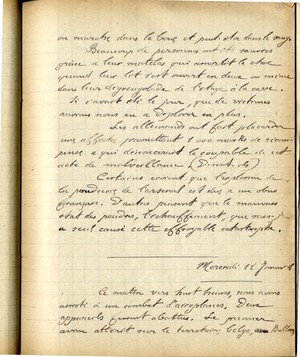 on marche dans la boue et peut être dans le sang.
Beaucoup de personnes ont été sauvées
grâce à leur matelas qui amortit le choc
quand leur lit s'est ouvert en deux ou même
dans leur dégringolade de l'étage à la cave.
Si ç'avait été le jour, que de victimes
aurions nous eu à déplorer en plus.
Les allemands ont fait placarder
une affiche promettant 1000 marks de récom
pense à qui dénoncerait le coupable de cet
acte de malveillance (Disent-ils)
Certains croient que l'explosion de
la poudrière de l'arsenal est dûe à un obus
français. D'autres pensent que le mauvais
état des poudres, l'échauffement, que sais-je
a seul causé cette effroyable catastrophe.
Mercredi 12 Janvier
Ce matin vers huit heures, nous avons
assisté à un combat d'aéroplanes. Deux
appareils furent abattus. Le premier
avion atterrit sur le territoire belge, au Ballon